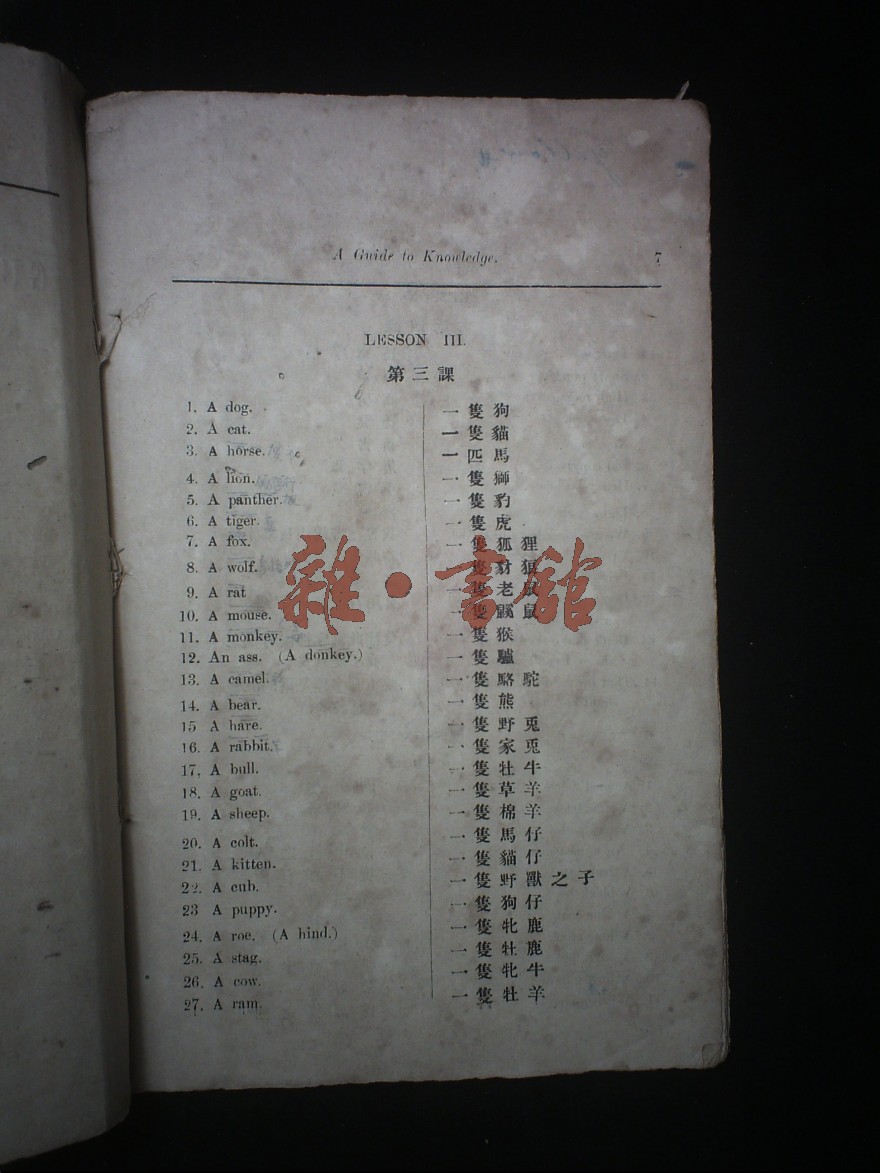 A Guide to Knowledge. 7
LESSON III.
第三課
1. A dog. 一隻狗
2. A cat. 一隻貓
3. A horse. 一匹馬
4. A lion. 一隻獅
5. A panther. 一隻豹
6. A tiger. 一隻虎
7. A fox. 一隻狐狸
8. A wolf. 一隻豺狼
9. A rat 一隻老鼠
10. A mouse. 一隻鼷鼠
11. A monkey. 一隻猴
12. An ass. (A donkey.) 一隻驢
13. A camel. 一隻駱駝
14. A bear. 一隻熊
15 A hare. 一隻野兎
16. A rabbit. 一隻家兎
17. A bull. 一隻牡牛
18. A goat. 一隻草羊
19. A sheep. 一隻棉羊
20. A colt. 一隻馬仔
21. A kitten. 一隻貓仔
22. A cub. 一隻野獸之子
23 A puppy. 一隻狗仔
24. A roe. (A hind.) 一隻牝鹿
25. A stag. 一隻牡鹿
26. A cow. 一隻牝牛
27. A ram. 一隻牡羊
雜·書館